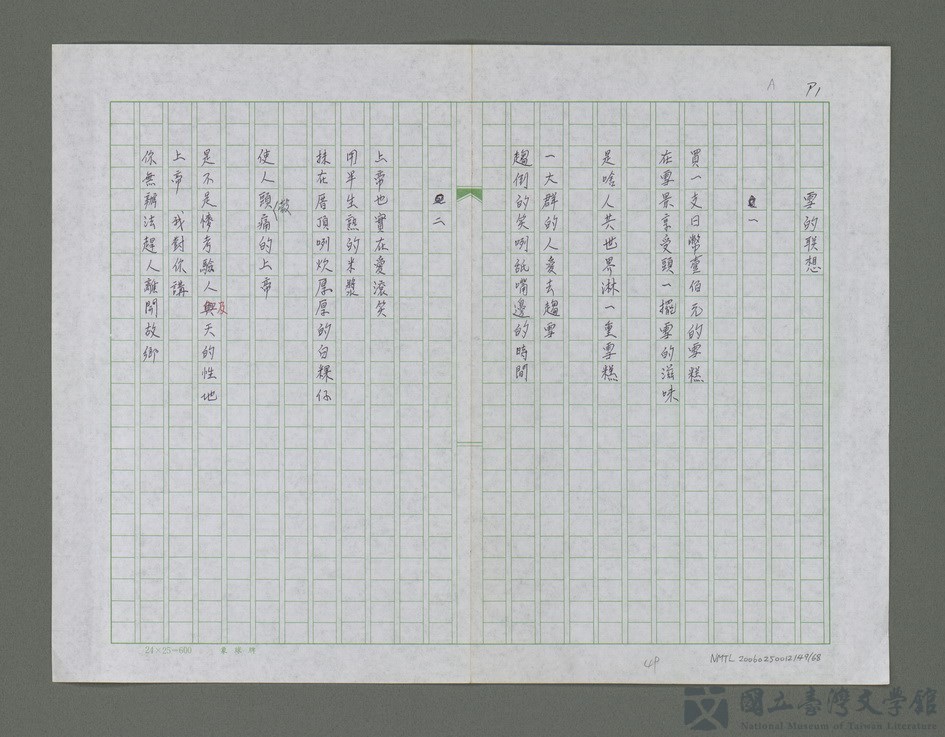 P1
A
雪的联想
一
買一支日幣壹伯元的雪糕
在雪景享受頭一擺雪的滋味
是啥人共世界淋一重雪糕
一大群的人愛去趨雪
趨倒的笑咧舐嘴邊的時間
二
上帝也實在愛滾笑
用半生熟的米漿
抹在厝頂咧炊厚厚的白粿仔
使人頭痛的上帝
是不是慘考驗人與反天的性地
上帝 我對你講
你無辦法趕人離開故鄉
24×25=600
4P
NMTL 20060250012149/68
國立臺灣文學館
National Museum of Taiwan Literature